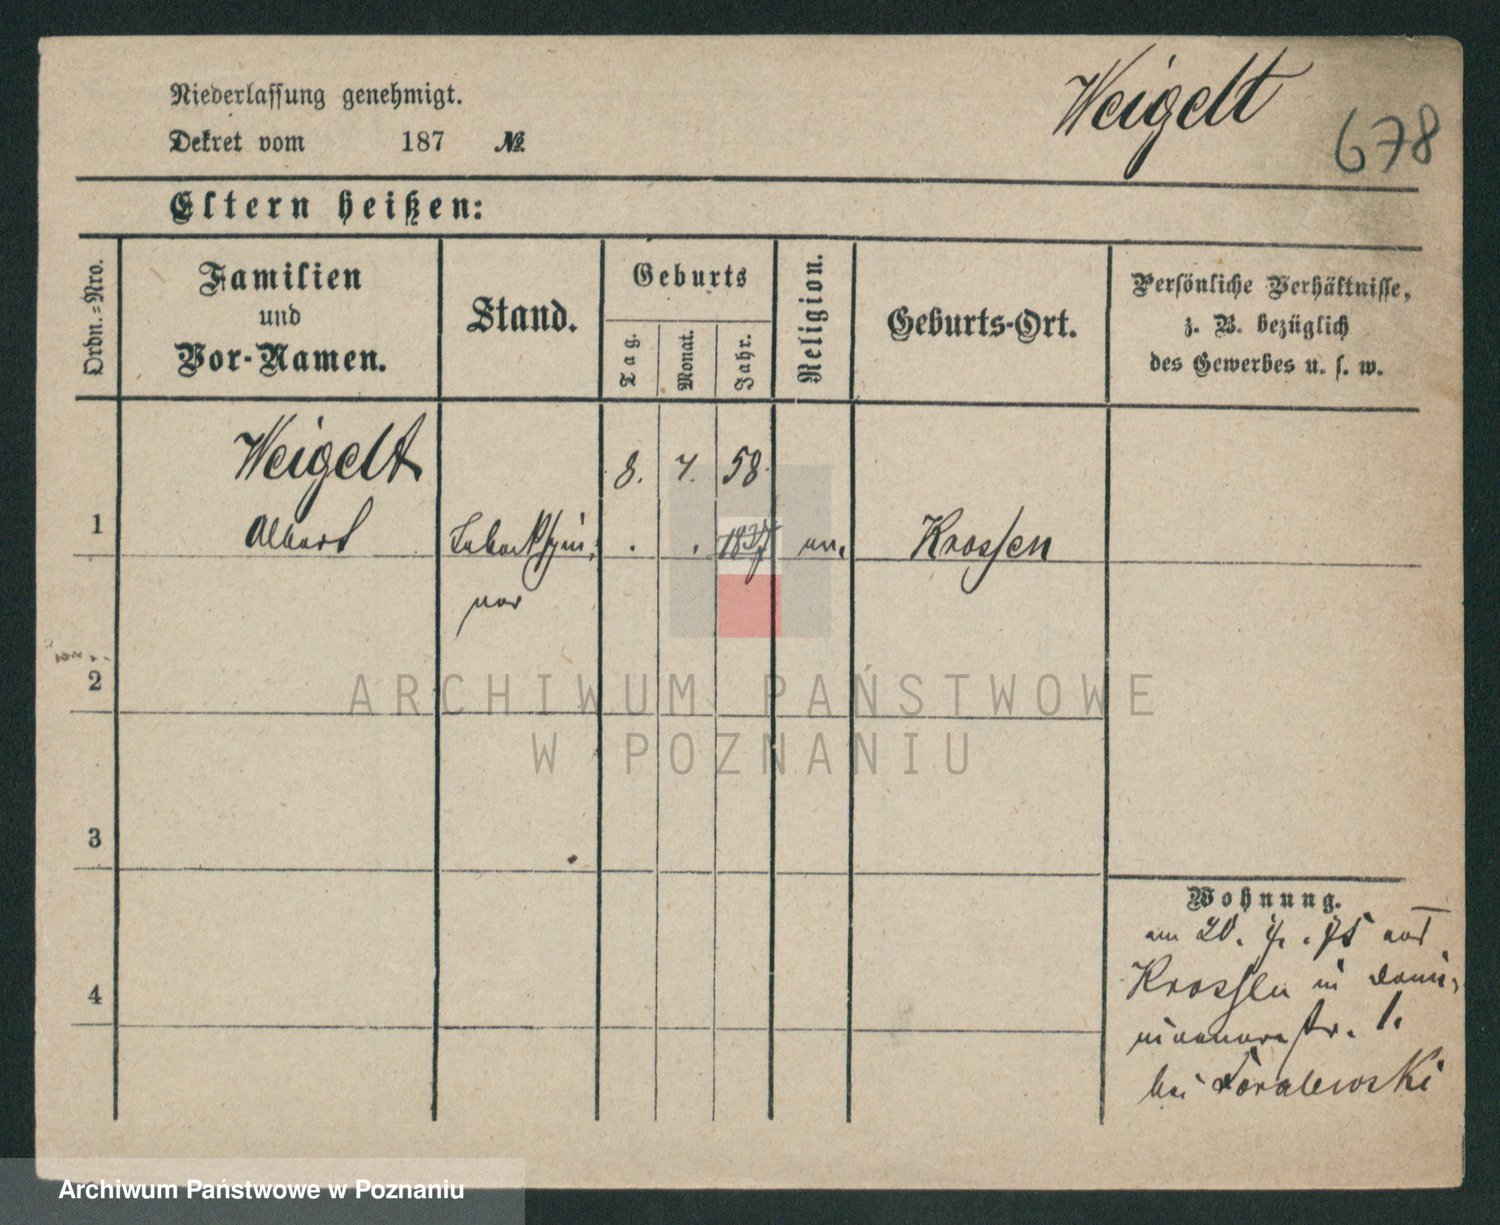 Weigelt
678
Niederlassung genehmigt.
Dekret vom 187 №
Eltern heißen:
Ordn.-Nro.
Familien
und
Vor-Namen.
Stand.
Geburts
Tag.
Monat.
Jahr.
Religion.
Geburts-Ort.
Persönliche Verhältnisse,
z. B. bezüglich
des Gewerbes u. s. w.
Weigelt
8. 58
1 Albert 1837 Krossen
2
3
4
Wohnung.
am 20. aus
Krossen in Domi-
nicanerstr. 1.
bei
ARCHIWUM PAŃSTWOWE
W POZNANIU
Archiwum Państwowe w Poznaniu